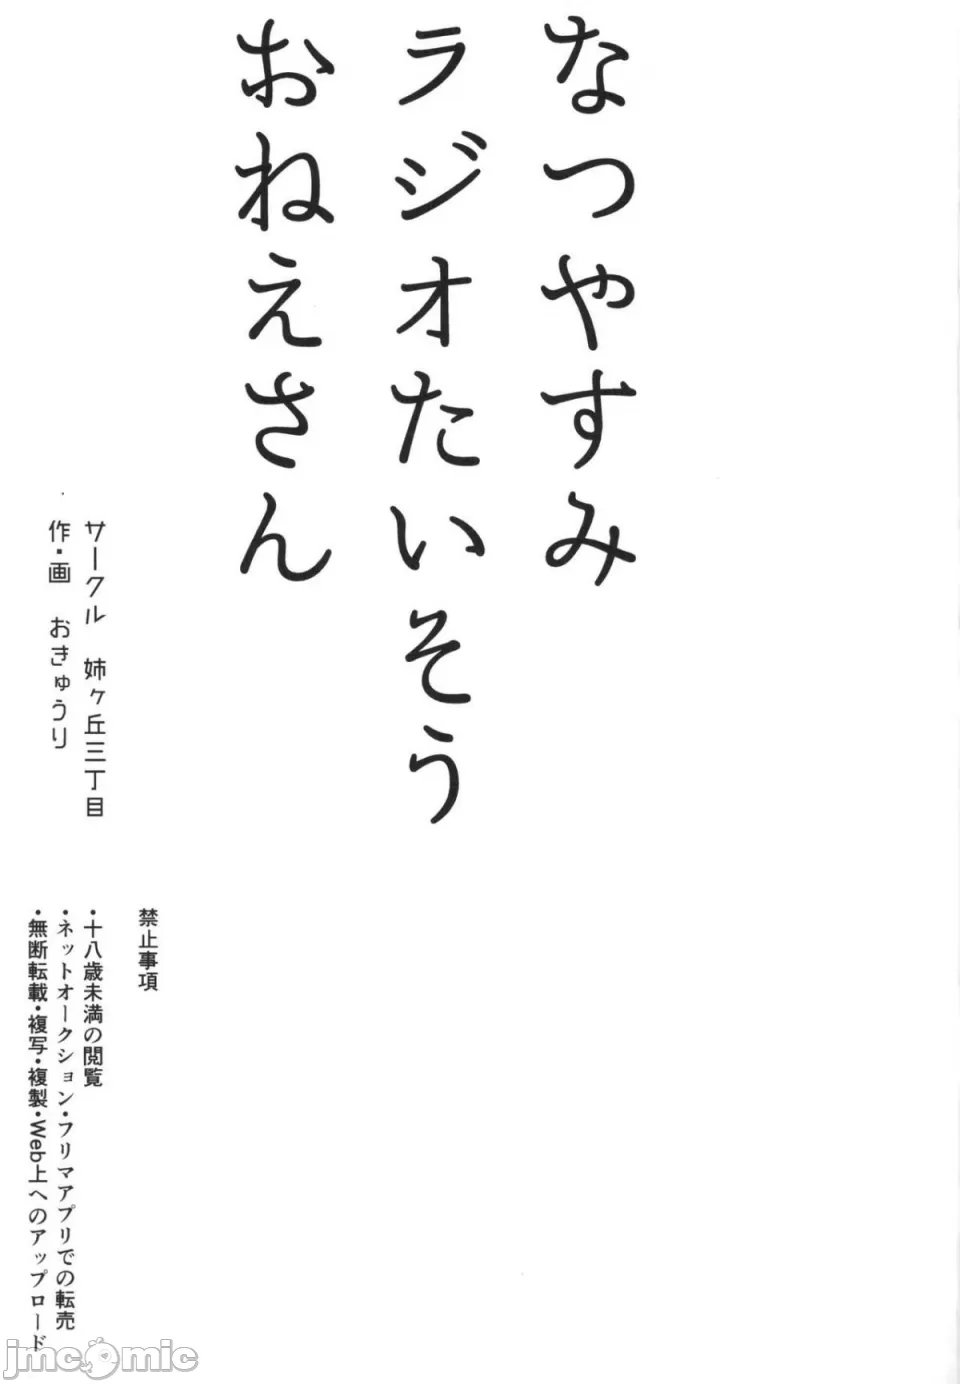 なつやすみ
ラジオたいそう
おねえさん
サークル　姉ヶ丘三丁目
作・画　おきゅうり
禁止事項
・十八歳未満の閲覧
・ネットオークション・フリマアプリでの転売
・無断転載・複写・複製・Web上へのアップロード
jmcomic